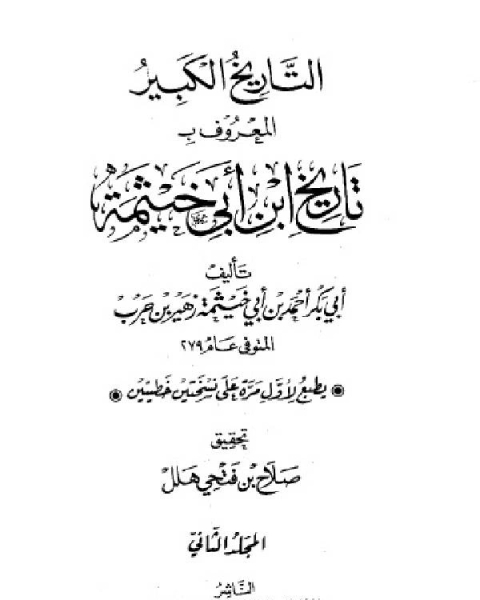 التَّارِيخُ الكَبِيرُ
المَعْرُوف بِ
تَارِيخِ ابْنِ أَبِي خَيْثَمَةَ
تَأليف
أَبِي بَكْر أَحْمَد بن أَبي خَيْثَمَة زهَير بن حَربْ
المتوفى عَام ٢٧٩
يطبع لأوَّل مَرَّة عَلى نسْخَتَيْن خَطّيتَين
تحقِيق
صَلَاح بن فَتْحِي هَلَل
المجَلد الثَّاني
النَّاشِرُ